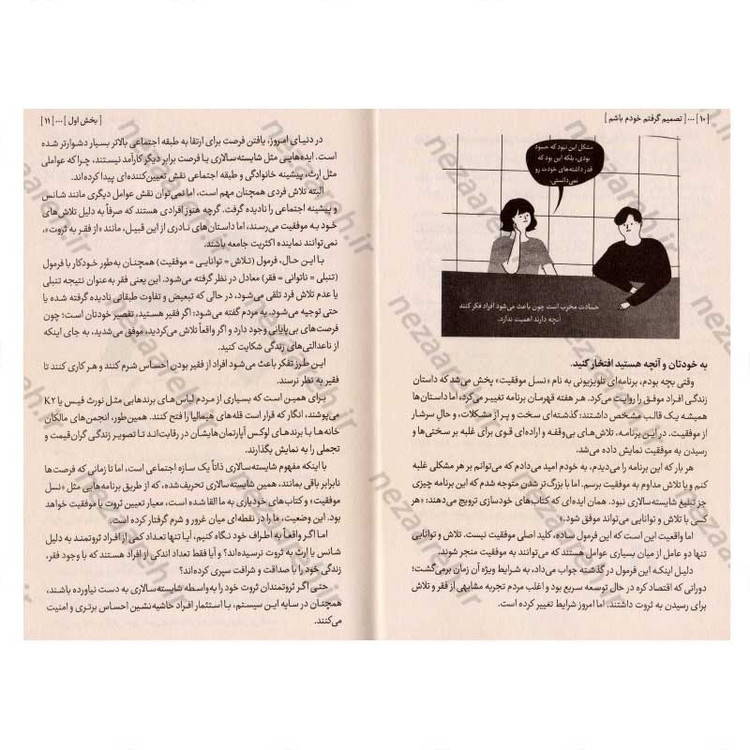 [ ۱۰ ] ... [ تصمیم گرفتم خودم باشم ]
مشکل این نبود که حسود
بودی، بلکه این بود که
قدر داشته‌های خودت رو
نمی‌دانستی.
حسادت مخرب است چون باعث می‌شود افراد فکر کنند
آنچه دارند اهمیت ندارد.
به خودتان و آنچه هستید افتخار کنید.
وقتی بچه بودم، برنامه‌ای تلویزیونی به نام «نسل موفقیت» پخش می‌شد که داستان
زندگی افراد موفق را روایت می‌کرد. هر هفته قهرمان برنامه تغییر می‌کرد، اما داستان‌ها
همیشه یک قالب مشخص داشتند: گذشته‌ای سخت و پر از مشکلات، و حالِ سرشار
از موفقیت. در این برنامه، تلاش‌های بی‌وقفه و اراده‌ای قوی برای غلبه بر سختی‌ها و
رسیدن به موفقیت نمایش داده می‌شد.
هر بار که این برنامه را می‌دیدم، به خودم امید می‌دادم که می‌توانم بر هر مشکلی غلبه
کنم و با تلاش مداوم به موفقیت برسم. اما با بزرگ‌تر شدن متوجه شدم که این برنامه چیزی
جز تبلیغ شایسته‌سالاری نبود. همان ایده‌ای که کتاب‌های خودسازی ترویج می‌دهند: «هر
کسی با تلاش و توانایی می‌تواند موفق شود.»
اما واقعیت این است که این فرمول ساده، کلید اصلی موفقیت نیست. تلاش و توانایی
تنها دو عامل از میان بسیاری عوامل هستند که می‌توانند به موفقیت منجر شوند.
دلیل اینکه این فرمول در گذشته جواب می‌داد، به شرایط ویژه آن زمان برمی‌گشت؛
دورانی که اقتصاد کره در حال توسعه سریع بود و اغلب مردم تجربه مشابهی از فقر و تلاش
برای رسیدن به ثروت داشتند. اما امروز شرایط تغییر کرده است.
[ بخش اول ] ... [ ۱۱ ]
در دنیای امروز، یافتن فرصت برای ارتقا به طبقه اجتماعی بالاتر بسیار دشوارتر شده
است. ایده‌هایی مثل شایسته‌سالاری یا فرصت برابر دیگر کارآمد نیستند، چرا که عواملی
مثل ارث، پیشینه خانوادگی و طبقه اجتماعی نقش تعیین‌کننده‌ای پیدا کرده‌اند.
البته تلاش فردی همچنان مهم است، اما نمی‌توان نقش عوامل دیگری مانند شانس
و پیشینه اجتماعی را نادیده گرفت. گرچه هنوز افرادی هستند که صرفاً به دلیل تلاش‌های
خود به موفقیت می‌رسند، اما داستان‌های نادری از این قبیل، مانند «از فقر به ثروت»،
نمی‌توانند نماینده اکثریت جامعه باشند.
با این حال، فرمول (تلاش = توانایی = موفقیت) همچنان به‌طور خودکار با فرمول
(تنبلی = ناتوانی = فقر) معادل در نظر گرفته می‌شود. این یعنی فقر به‌عنوان نتیجه تنبلی
یا عدم تلاش فرد تلقی می‌شود، در حالی که تبعیض و تفاوت طبقاتی نادیده گرفته شده یا
حتی توجیه می‌شود. به مردم گفته می‌شود: اگر فقیر هستید، تقصیر خودتان است؛ چون
فرصت‌های بی‌پایانی وجود دارد و اگر واقعاً تلاش می‌کردید، موفق می‌شدید، به جای اینکه
از ناعدالتی‌های زندگی شکایت کنید.
این طرز تفکر باعث می‌شود افراد از فقیر بودن احساس شرم کنند و هر کاری کنند تا
فقیر به نظر نرسند.
برای همین است که بسیاری از مردم لباس‌های برندهایی مثل نورث فیس یا K2
می‌پوشند، انگار که قرار است قله‌های هیمالیا را فتح کنند. همین‌طور، انجمن‌های مالکان
خانه‌ها با برندهای لوکس آپارتمان‌هایشان در رقابت‌اند تا تصویر زندگی گران‌قیمت و
تجملی را به نمایش بگذارند.
با اینکه مفهوم شایسته‌سالاری ذاتاً یک سازه اجتماعی است، اما تا زمانی که فرصت‌ها
نابرابر باقی بمانند، همین شایسته‌سالاری تحریف‌شده، که از طریق برنامه‌هایی مثل «نسل
موفقیت» و کتاب‌های خودیاری به ما القا شده است، معیار تعیین ثروت یا موفقیت خواهد
بود. این وضعیت، ما را در نقطه‌ای میان غرور و شرم گرفتار کرده است.
اما اگر واقعاً به اطراف خود نگاه کنیم، آیا تنها تعداد کمی از افراد ثروتمند به دلیل
شانس یا ارث به ثروت نرسیده‌اند؟ و آیا فقط تعداد اندکی از افراد هستند که با وجود فقر،
زندگی خود را با صداقت و شرافت سپری کرده‌اند؟
حتی اگر ثروتمندان ثروت خود را به‌واسطه شایسته‌سالاری به دست نیاورده باشند،
همچنان در سایه این سیستم، با استثمار افراد حاشیه‌نشین احساس برتری و امنیت
می‌کنند.
nezaareh.ir